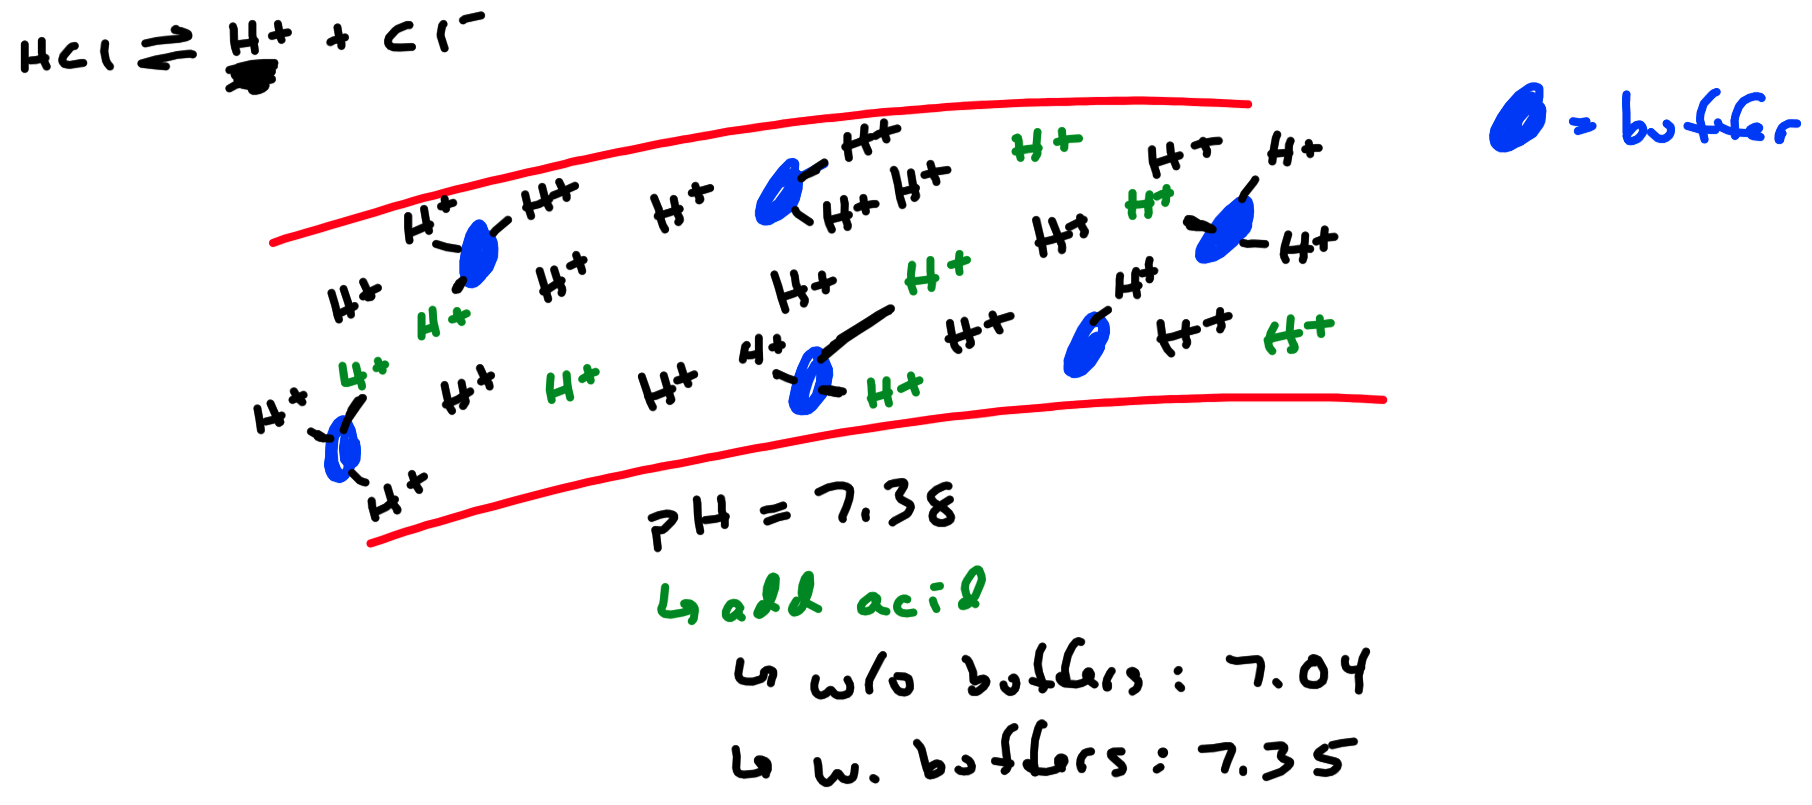 HCl ⇌ H+ + Cl−
= buffer
H+ H+ H+ H+ H+
H+ H+ H+ H+ H+ H+
H+ H+ H+ H+
H+ H+ H+ H+
H+ H+ H+ H+ H+
H+ H+ H+ H+ H+ H+
H+
H+
pH = 7.38
↳ add acid
↳ w/o buffers: 7.04
↳ w. buffers: 7.35